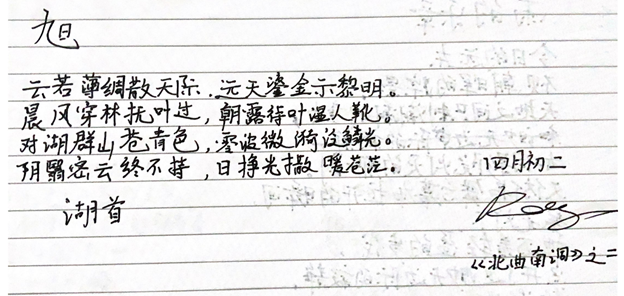 旭日
云若薄绸散天际，远天鎏金示黎明。
晨风穿林抚叶过，朝露待叶湿人靴。
对湖群山苍青色，零波微漪没鳞光。
阴翳密云终不持，日挣光撒暖苍茫。
湖首
四月初二
《北曲南调》之二